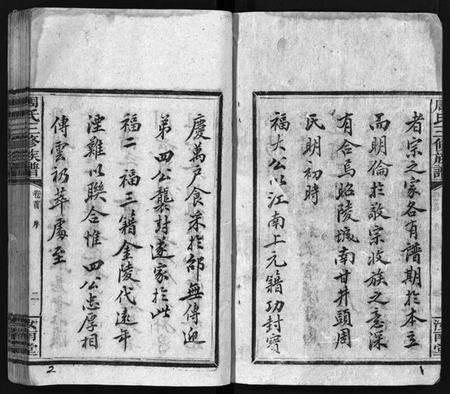 者宗之家各有譜期於本立
而明倫於敬宗收族之意深
有合焉昭陵城南甘井頭周
氏明初時
福大公以江南上元籍功封寶
慶萬戶食采於邵無傳迎
弟 四公襲封遂家於此
福二 福三籍金陵代遠年
湮難以聯合惟 四公忠厚相
傳雲礽萃處至
周氏三修族譜
卷首 序
二
汝南堂
周氏三修族譜
汝南堂
1
2